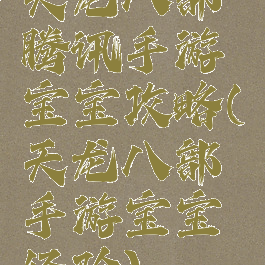 天龙八部
腾讯手游
宝宝攻略(
天龙八部
手游宝宝